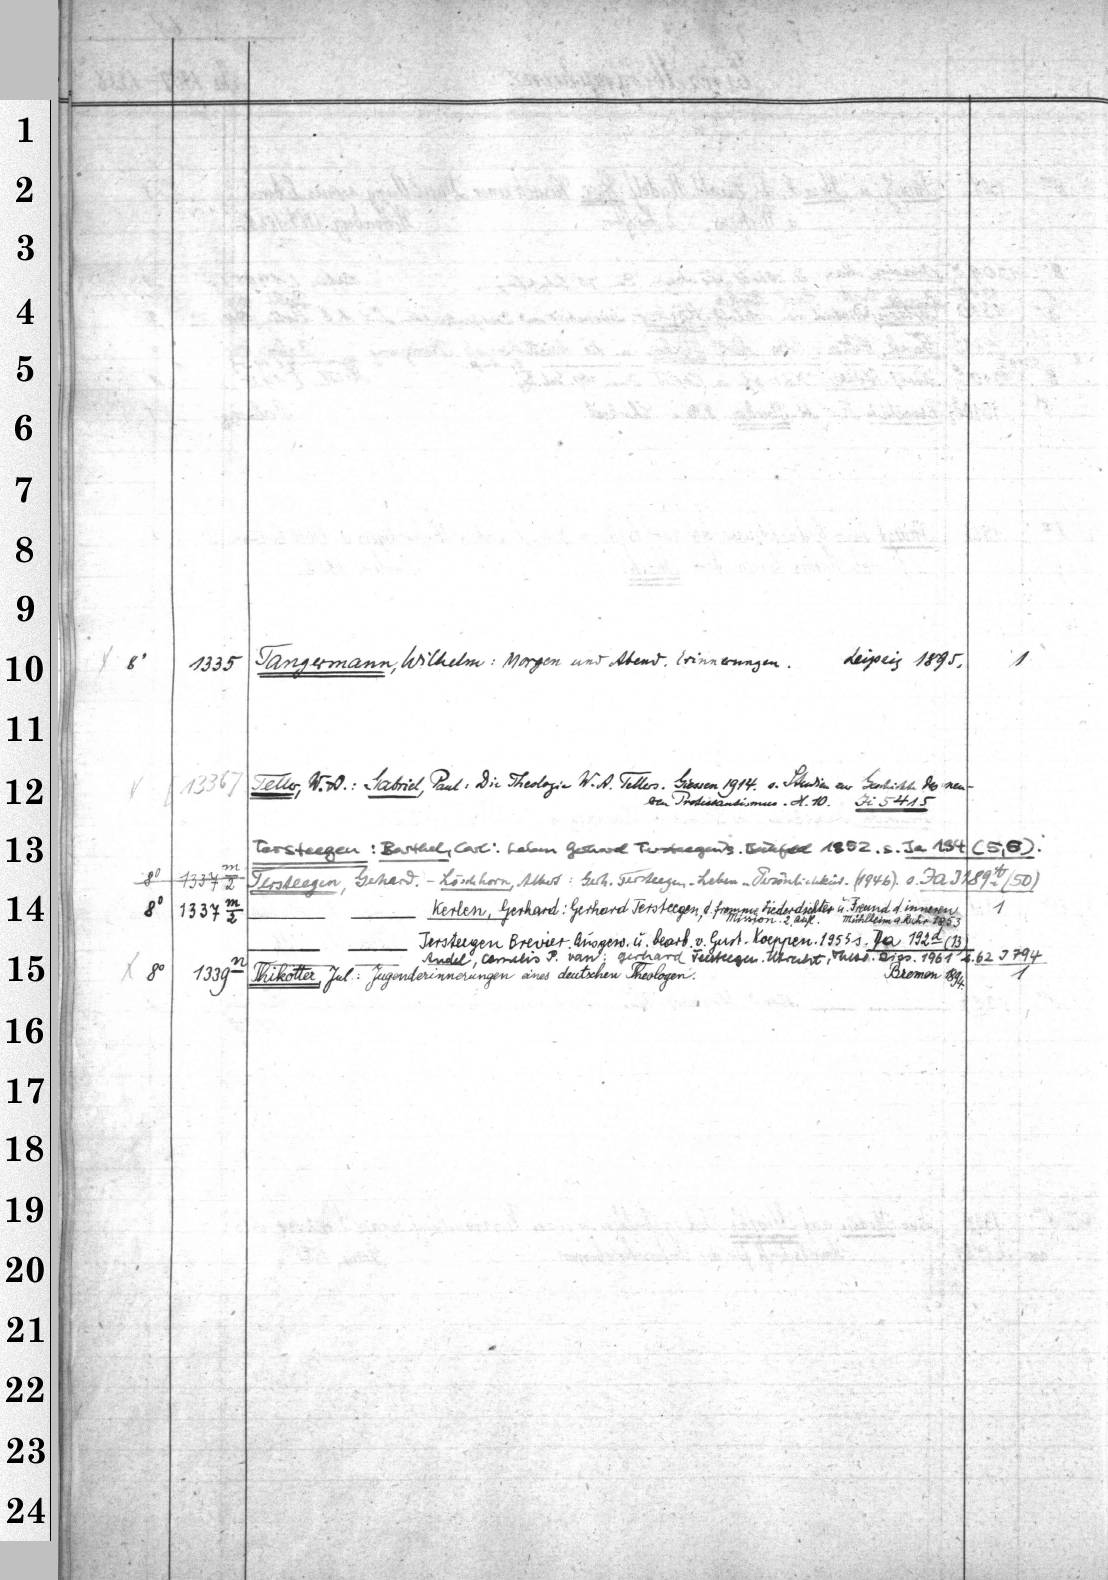 1
2
3
4
5
6
7
8
9
10 8° 1335 Tangermann, Wilhelm: Morgen und Abend. Erinnerungen. Leipzig 1895. 1
11
12 [1336] Teller, W.A.: Gabriel, Paul: Die Theologie W. A. Tellers. Giessen 1914. s. Studien zur Geschichte des neu-
eren Protestantismus. H. 10. Ii 5415
13 Tersteegen: Barthel, Carl: Leben Gerhard Tersteegen's. 1852. s. Ja 134 (5,6).
8° 1337 m/2 Tersteegen, Gerhard. - Löschhorn, Albert: Gerh. Tersteegen. Leben u. Persönlichkeit. (1946). s. Ja J 189 (50)
14 8° 1337 m/2 Kerlen, Gerhard: Gerhard Tersteegen, d. fromme Liederdichter u. Freund d. inneren
Mission. 2. Aufl. Mühlheim a. Ruhr 1853 1
Tersteegen Brevier. Ausgew. u. bearb. v. Gust. Koeppen. 1955 s. Ja 192d (13)
Andel, Cornelis P. van: Gerhard Tersteegen. Utrecht, Theol. Diss. 1961 s. 62 J 794
15 8° 1339 n Thikötter, Jul.: Jugenderinnerungen eines deutschen Theologen. Bremen 1894. 1
16
17
18
19
20
21
22
23
24